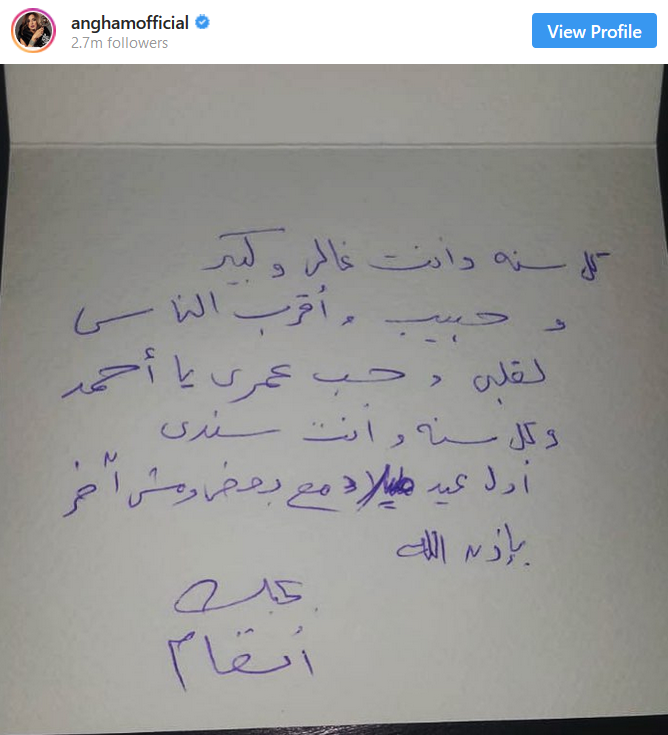 anghamofficial
2.7m followers
View Profile
كل سنه وانت غالى وكبير
و حبيب و أقرب الناس
لقلبى و حب عمرى يا أحمد
و كل سنه و أنت سندى
أول عيد ميلاد مع بعض ومش آخر
بإذن الله
بحبك
أنغام